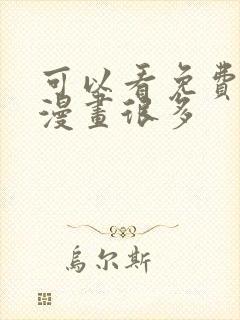 可以看免費
漫畫很多
烏尔斯